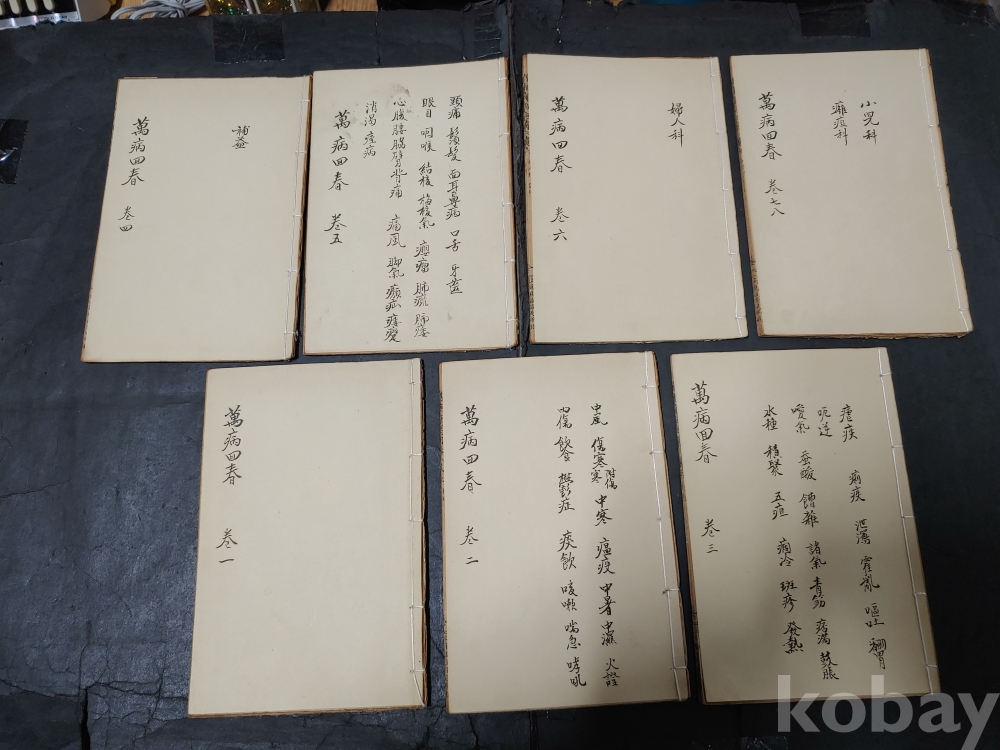 補益
萬病回春 卷四
頭痛 鬚髮 面耳鼻病 口舌 牙齒
眼目 咽喉 結核 梅核氣 癭瘤 肺癰 肺痿
心腹腰脇臂背痛 痛風 脚氣 癲疝 痿躄
消渴 痓病
萬病回春 卷五
婦人科
萬病回春 卷六
小兒科
癰疽科
萬病回春 卷七八
萬病回春 卷一
中風 傷寒 附傷寒 中寒 瘟疫 中暑 中濕 火證
內傷 飮食 鬱症 痰飮 咳嗽 喘急 哮吼
萬病回春 卷二
瘧疾 痢疾 泄瀉 霍亂 嘔吐 翻胃
呃逆
噯氣 吞酸 嘈雜 諸氣 靑筋 痞滿 鼓脹
水種 積聚 五疸 痼冷 斑疹 發熱
萬病回春 卷三
kobay